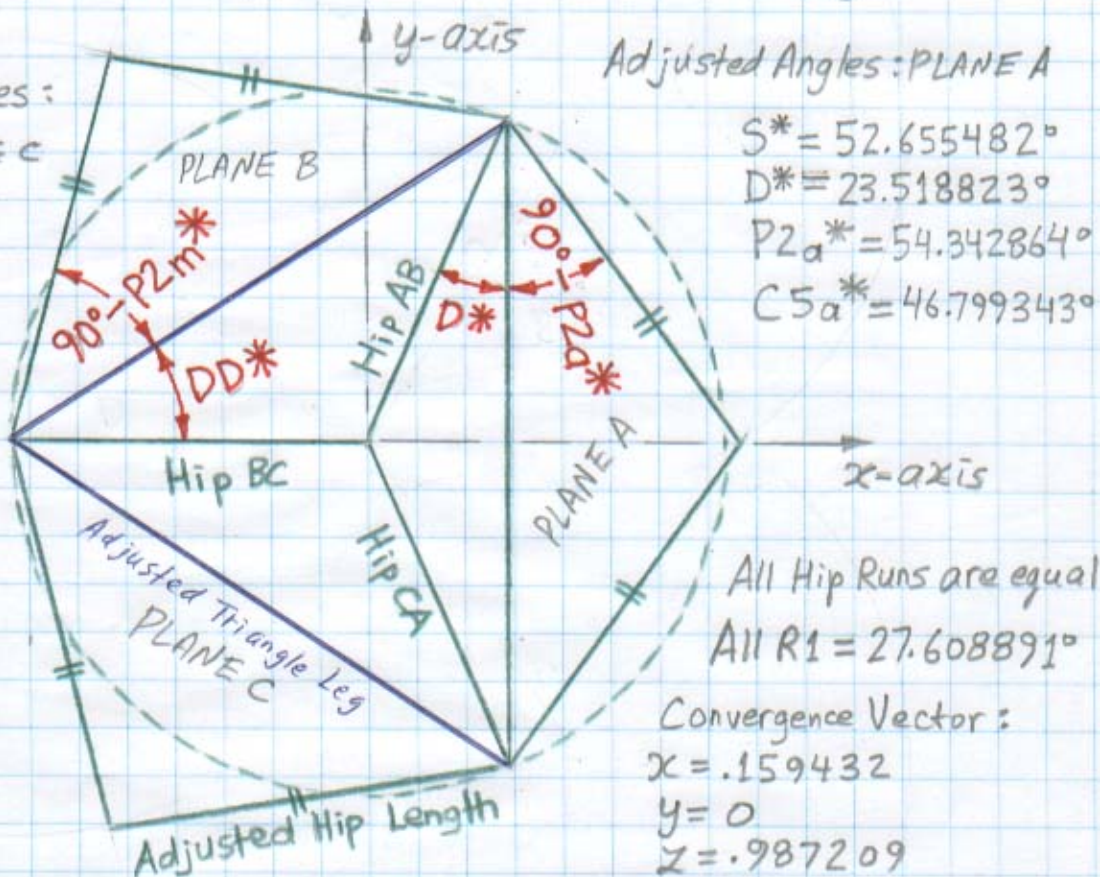 y-axis
Adjusted Angles: PLANE A
S* = 52.655482°
D* = 23.518823°
P2a* = 54.342864°
C5a* = 46.799343°
es:
E C
PLANE B
90°-P2m*
DD*
Hip AB
D*
90°-P2a*
PLANE A
Hip BC
x=axis
Hip CA
Adjusted Triangle Leg
PLANE C
Adjusted Hip Length
All Hip Runs are equal
All R1 = 27.608891°
Convergence Vector:
x = .159432
y = 0
z = .987209